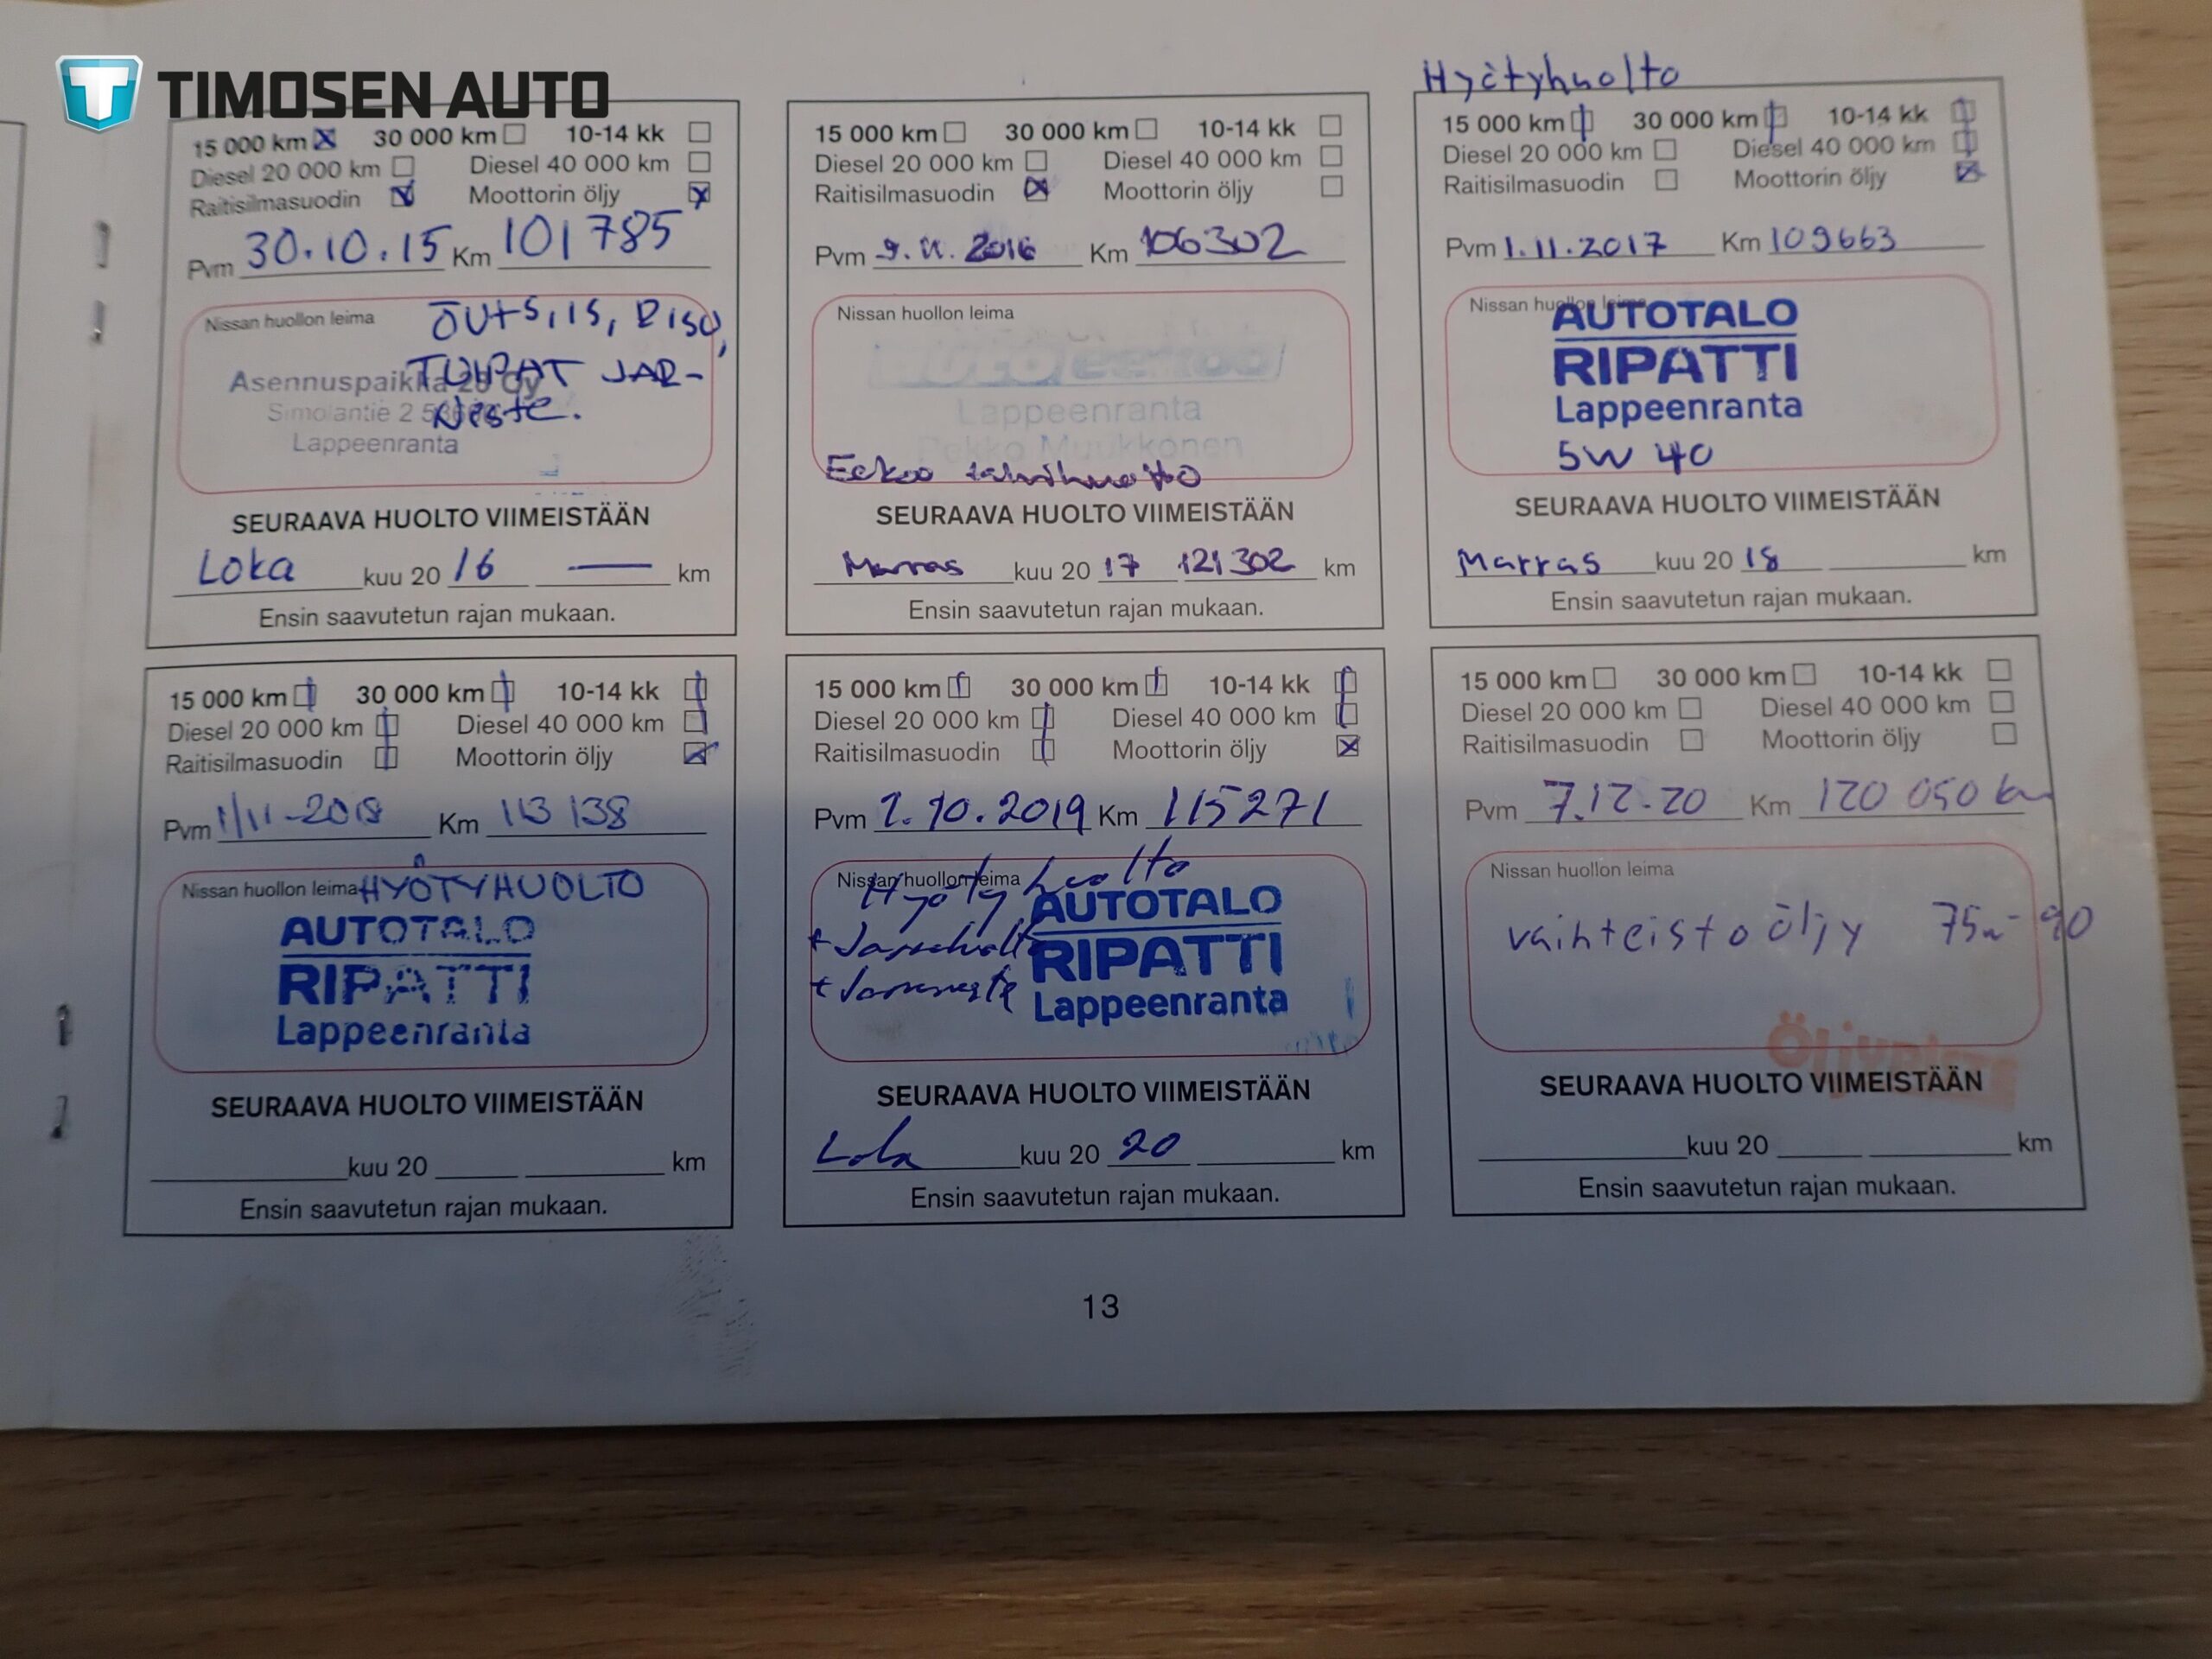 TIMOSEN AUTO
15 000 km 30 000 km 10-14 kk
Diesel 20 000 km Diesel 40 000 km
Raitisilmasuodin Moottorin öljy
Pvm 30.10.15 Km 101785
Nissan huollon leima
Asennuspaikka Oy
TULPAT JAR-
Simolantie 2
Neste.
Lappeenranta
SEURAAVA HUOLTO VIIMEISTÄÄN
Loka kuu 20 16 — km
Ensin saavutetun rajan mukaan.
15 000 km 30 000 km 10-14 kk
Diesel 20 000 km Diesel 40 000 km
Raitisilmasuodin Moottorin öljy
Pvm 9.11.2016 Km 106302
Nissan huollon leima
Lappeenranta
Pekko Muukkonen
Eekoo
SEURAAVA HUOLTO VIIMEISTÄÄN
Marras kuu 20 17 121302 km
Ensin saavutetun rajan mukaan.
Hyötyhuolto
15 000 km 30 000 km 10-14 kk
Diesel 20 000 km Diesel 40 000 km
Raitisilmasuodin Moottorin öljy
Pvm 1.11.2017 Km 109663
Nissan huollon leima
AUTOTALO
RIPATTI
Lappeenranta
5W 40
SEURAAVA HUOLTO VIIMEISTÄÄN
Marras kuu 20 18 km
Ensin saavutetun rajan mukaan.
15 000 km 30 000 km 10-14 kk
Diesel 20 000 km Diesel 40 000 km
Raitisilmasuodin Moottorin öljy
Pvm 1/11-2018 Km 113 138
Nissan huollon leima HYÖTYHUOLTO
AUTOTALO
RIPATTI
Lappeenranta
SEURAAVA HUOLTO VIIMEISTÄÄN
kuu 20 km
Ensin saavutetun rajan mukaan.
15 000 km 30 000 km 10-14 kk
Diesel 20 000 km Diesel 40 000 km
Raitisilmasuodin Moottorin öljy
Pvm 1.10.2019 Km 115271
Nissan huollon leima
Hyötyhuolto
AUTOTALO
+ Jarruhuolto
RIPATTI
+ Jarruneste
Lappeenranta
SEURAAVA HUOLTO VIIMEISTÄÄN
Loka kuu 20 20 km
Ensin saavutetun rajan mukaan.
15 000 km 30 000 km 10-14 kk
Diesel 20 000 km Diesel 40 000 km
Raitisilmasuodin Moottorin öljy
Pvm 7.12.20 Km 120 050 km
Nissan huollon leima
vaihteistoöljy 75w-90
SEURAAVA HUOLTO VIIMEISTÄÄN
kuu 20 km
Ensin saavutetun rajan mukaan.
13